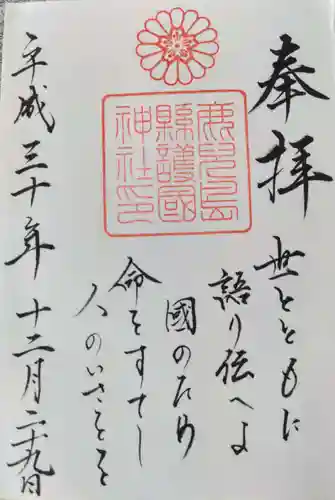 奉拝
鹿兒島
縣護國
神社印
世とともに
語り伝へよ
國のため
命をすてし
人のいさをを
平成三十年十二月二十九日